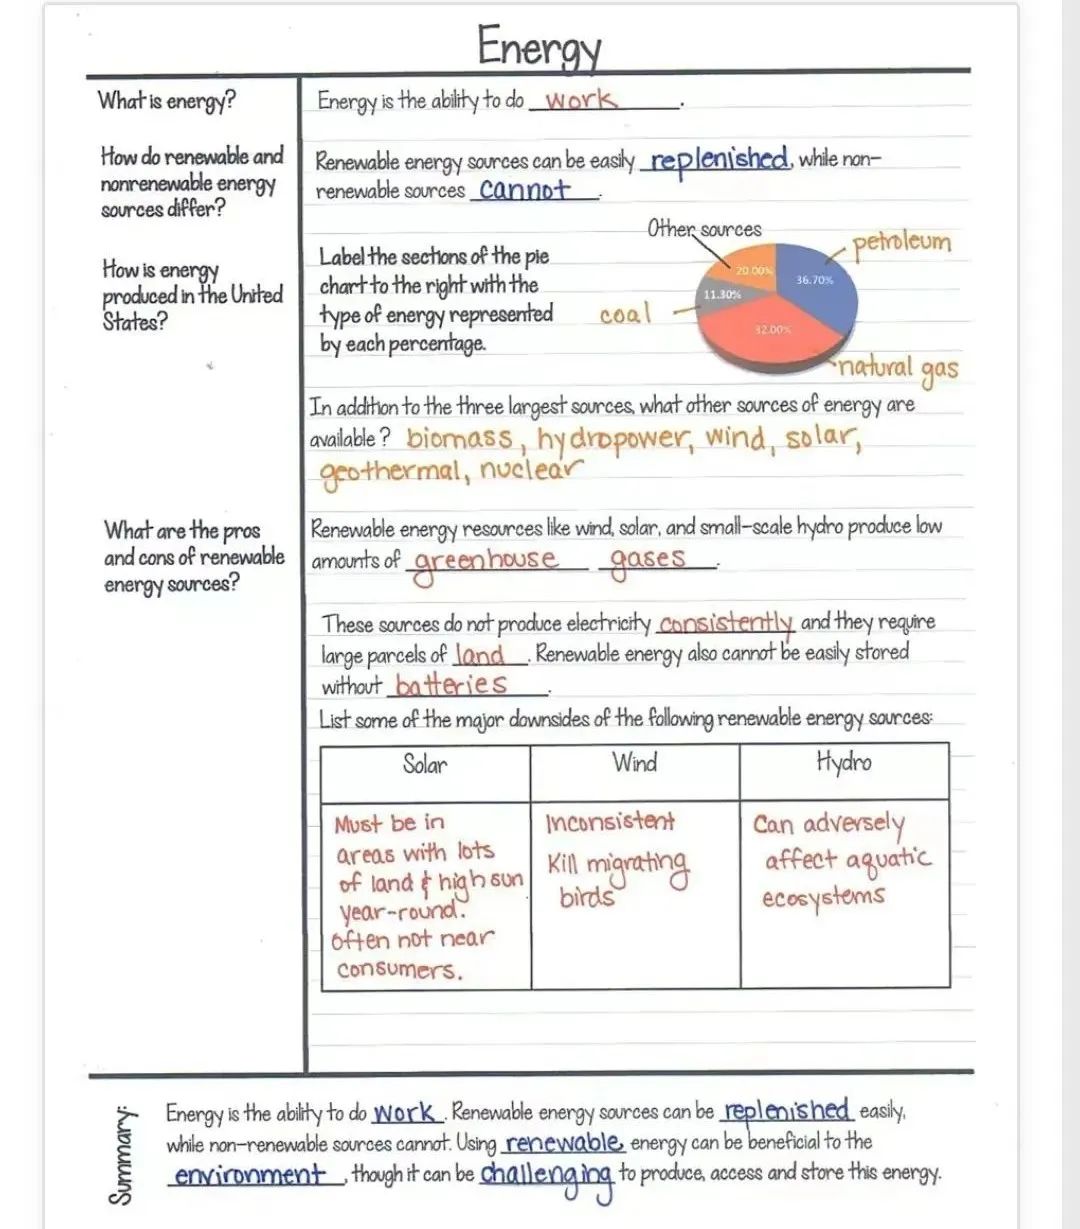 Energy
What is energy?
Energy is the ability to do work.
How do renewable and
nonrenewable energy
sources differ?
Renewable energy sources can be easily replenished, while non-
renewable sources cannot.
How is energy
produced in the United
States?
Label the sections of the pie
chart to the right with the
type of energy represented
by each percentage.
Other sources
petroleum
20.00%
36.70%
11.30%
coal
32.00%
natural gas
In addition to the three largest sources, what other sources of energy are
available? biomass, hydropower, wind, solar,
geothermal, nuclear
What are the pros
and cons of renewable
energy sources?
Renewable energy resources like wind, solar, and small-scale hydro produce low
amounts of greenhouse gases.
These sources do not produce electricity consistently and they require
large parcels of land. Renewable energy also cannot be easily stored
without batteries.
List some of the major downsides of the following renewable energy sources:
Solar
Must be in
areas with lots
of land & high sun
year-round.
Often not near
consumers.
Wind
Inconsistent
Kill migrating
birds
Hydro
Can adversely
affect aquatic
ecosystems
Summary:
Energy is the ability to do work. Renewable energy sources can be replenished easily,
while non-renewable sources cannot. Using renewable energy can be beneficial to the
environment, though it can be challenging to produce, access and store this energy.